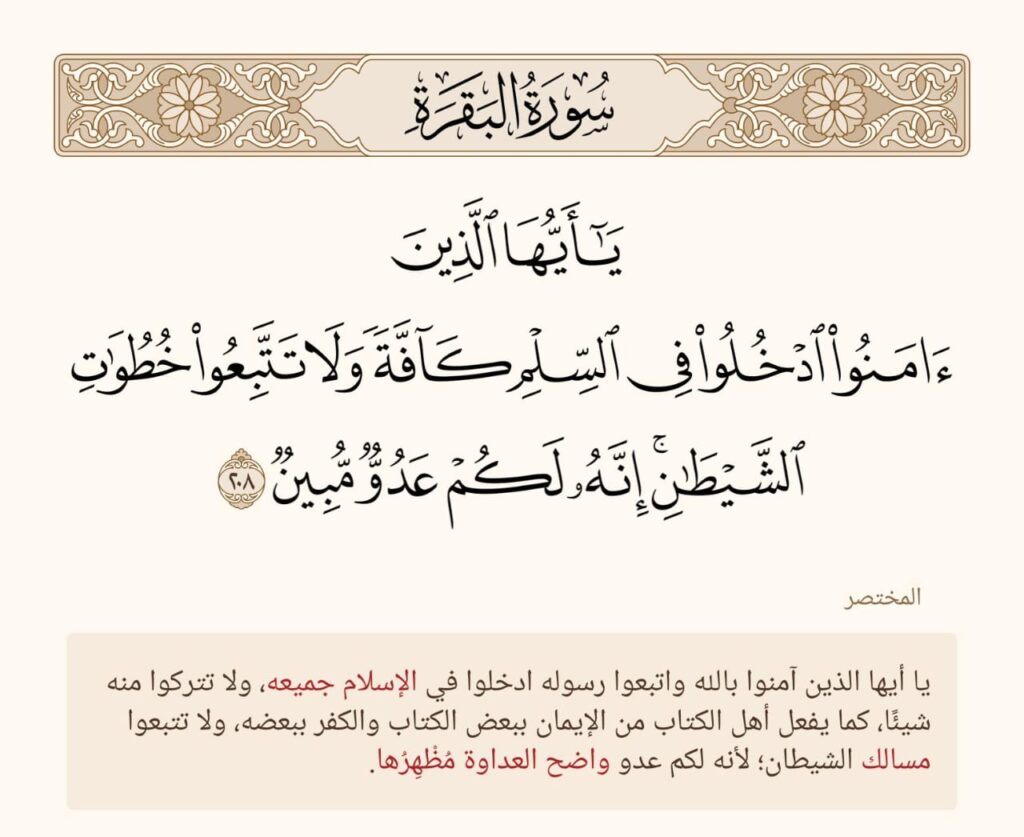 سُورَةُ البَقَرَةِ
يَـٰٓأَيُّهَا ٱلَّذِينَ
ءَامَنُوا۟ ٱدْخُلُوا۟ فِى ٱلسِّلْمِ كَآفَّةً وَلَا تَتَّبِعُوا۟ خُطُوَٰتِ
ٱلشَّيْطَـٰنِ ۚ إِنَّهُۥ لَكُمْ عَدُوٌّ مُّبِينٌ ٢٠٨
المختصر
يا أيها الذين آمنوا بالله واتبعوا رسوله ادخلوا في الإسلام جميعه، ولا تتركوا منه
شيئًا، كما يفعل أهل الكتاب من الإيمان ببعض الكتاب والكفر ببعضه، ولا تتبعوا
مسالك الشيطان؛ لأنه لكم عدو واضح العداوة مُظْهِرُها.